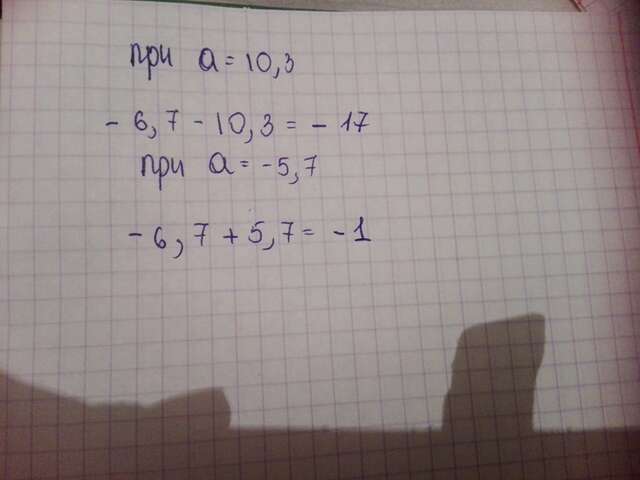 при a = 10,3
- 6,7 - 10,3 = - 17
при a = -5,7
- 6,7 + 5,7 = - 1